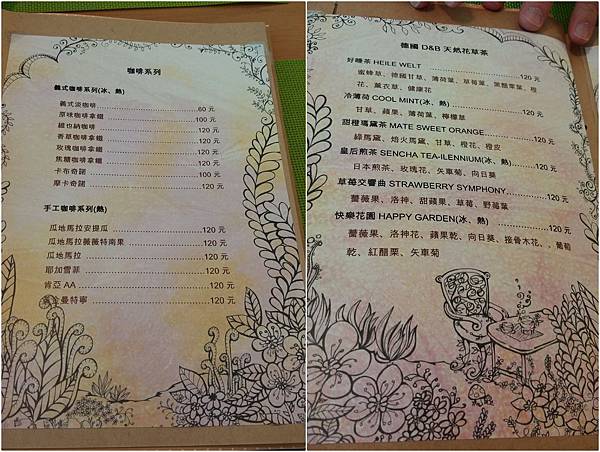 咖啡系列
義式咖啡系列(冰、熱)
義式淡咖啡............60 元
原味咖啡拿鐵............100 元
維也納咖啡............120 元
香草咖啡拿鐵............120 元
玫瑰咖啡拿鐵............120 元
焦糖咖啡拿鐵............120 元
卡布奇諾............100 元
摩卡奇諾............120 元
手工咖啡系列(熱)
瓜地馬拉安提瓜............120 元
瓜地馬拉薇薇特南果............120 元
瓜地馬拉............120 元
耶加雪菲............120 元
肯亞 AA............120 元
黃金曼特寧............120 元
德國 D&B 天然花草茶
好睡茶 HEILE WELT............120 元
蜜蜂草、德國甘草、薄荷葉、草莓葉、黑醋栗葉、橙
花、薰衣草、健康花
冷薄荷 COOL MINT(冰、熱)............120 元
甘草、蘋果、薄荷葉、檸檬草
甜橙瑪黛茶 MATE SWEET ORANGE............120 元
綠馬黛、焙火馬黛、甘草、橙花、橙皮
皇后煎茶 SENCHA TEA-ILENNIUM(冰、熱)............120 元
日本煎茶、玫瑰花、矢車菊、向日葵
草莓交響曲 STRAWBERRY SYMPHONY............120 元
薔薇果、洛神、甜蘋果、草莓、野莓葉
快樂花園 HAPPY GARDEN(冰、熱)............120 元
薔薇果、洛神花、蘋果乾、向日葵、接骨木花、葡萄
乾、紅醋栗、矢車菊